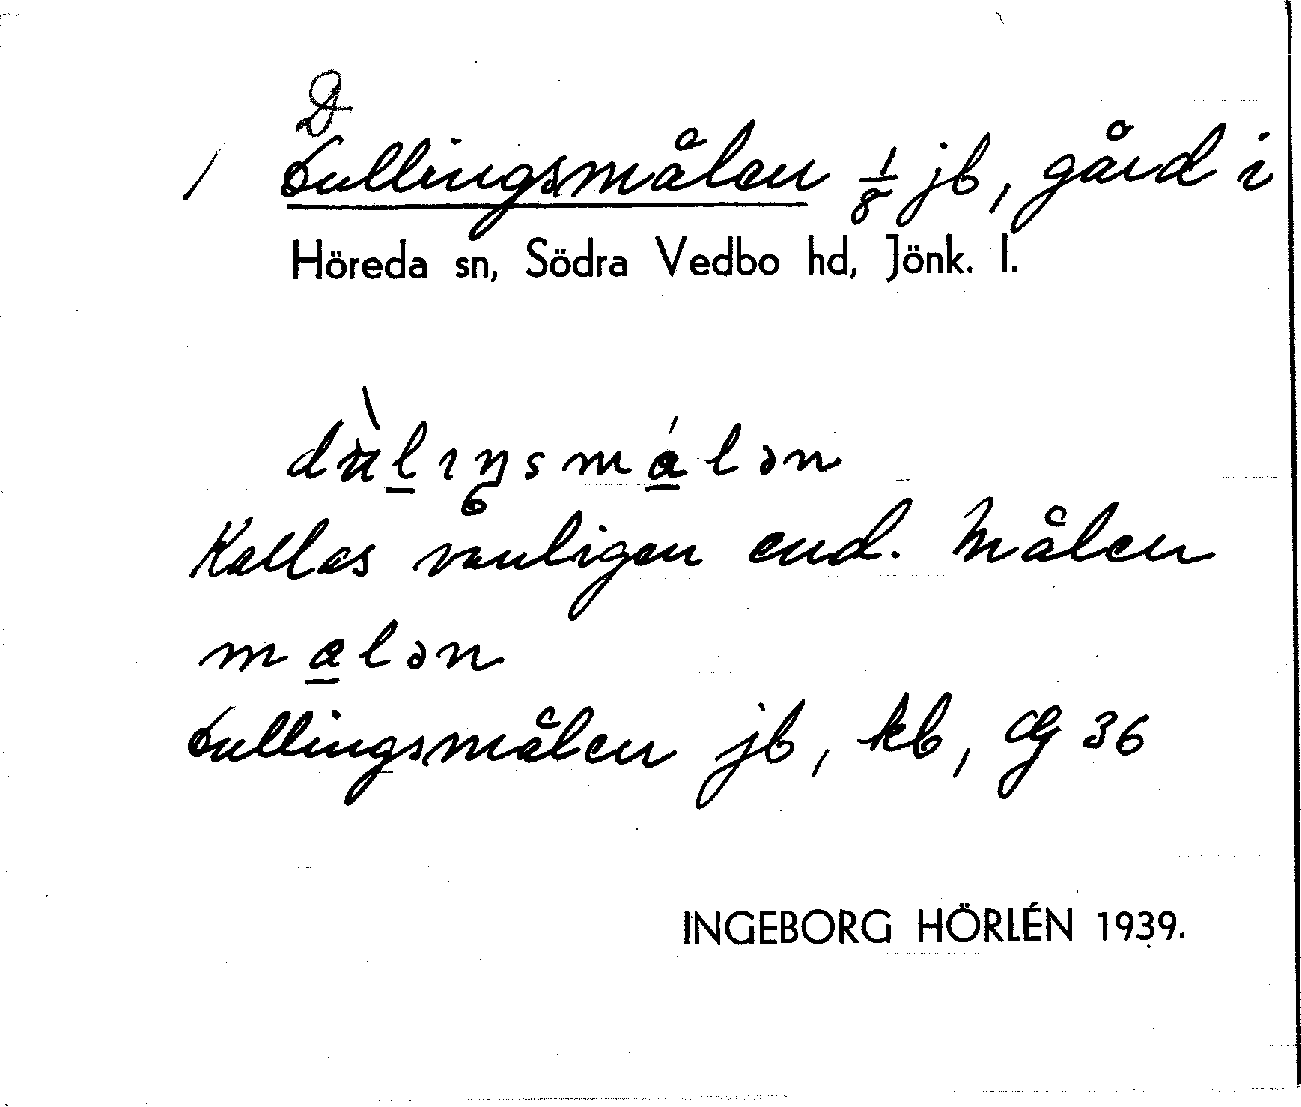 D
/ Dullingsmålen 1/8 jb, gård i
Höreda sn, Södra Vedbo hd, Jönk. l.
dùlıŋsmálən
Kallas vanligen end. Målen
malən
Dullingsmålen jb, kb, GG 36
INGEBORG HÖRLÉN 1939.